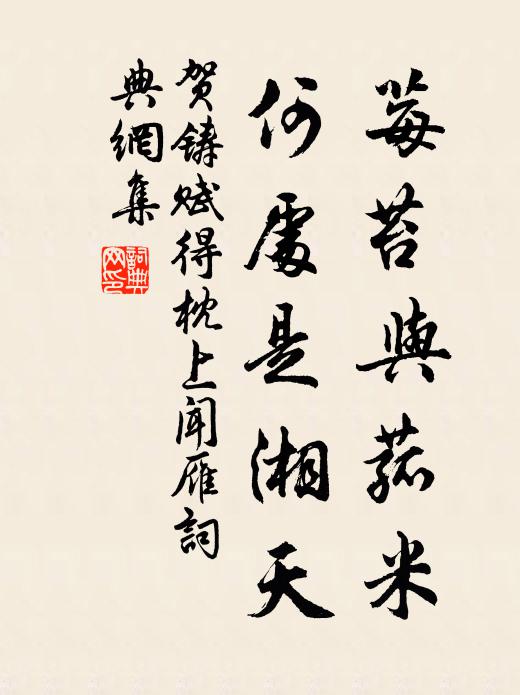 莓苔與菰米
何處是湘天
賀鑄賦得枕上聞雁詞
典網集
詞典
网印